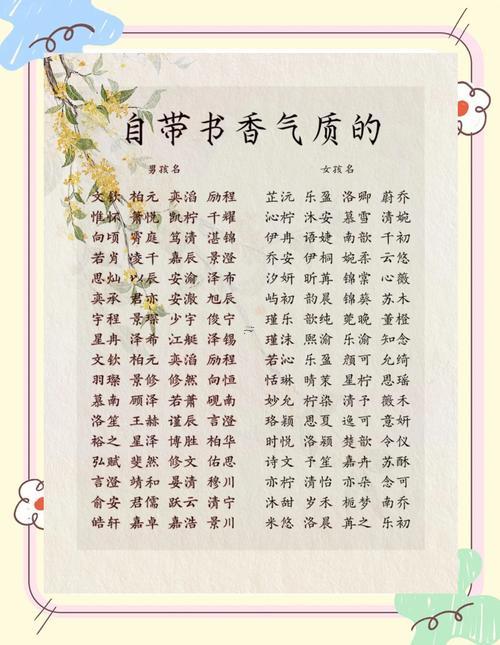 自带书香气质的
男孩名 女孩名
文钦 柏元 奕滔 励程 芷沅 乐盈 洛卿 蔚乔
惟怀 萧悦 凯柠 千耀 沁柠 沐安 慕雪 清婉
向顷 霄庭 笃清 湛锦 伊冉 语婕 南歆 千初
若肖 凌千 嘉辰 景澄 乔安 伊桐 婉柔 云心
思灿 以辰 安渝 泽布 汐妍 昕苒 锦棠 心薇
奕承 君亦 安澈 旭辰 屿初 韵晨 锦葵 苏木
宇程 景琛 少宇 俊宁 瑾乐 歆纯 莞晚 董橙
星冉 泽希 江艇 泽锡 瑾沫 熙渝 乐渝 知念
文钦 柏元 奕滔 励程 若沁 乐盈 颜可 允绮
羽璨 景修 修然 向恒 恬琳 晴茉 星柠 思瑶
慕南 顾泽 若萧 砚南 妙允 柠染 清予 薇禾
洛笙 王赫 谨辰 言澄 珞颖 思夏 逸可 意妍
裕之 星泽 博胜 柏华 时悦 洛颖 楚歆 令仪
弘赋 斐然 修文 佑思 诗文 予笙 嘉卉 苏酥
言澄 靖和 晏清 穆川 亦柠 清怡 亦朵 念可
俞安 君儒 跃云 清宁 沐甜 岁禾 栀梦 南乔
皓轩 嘉卓 嘉浩 景川 米悠 洛晨 苒之 乐初